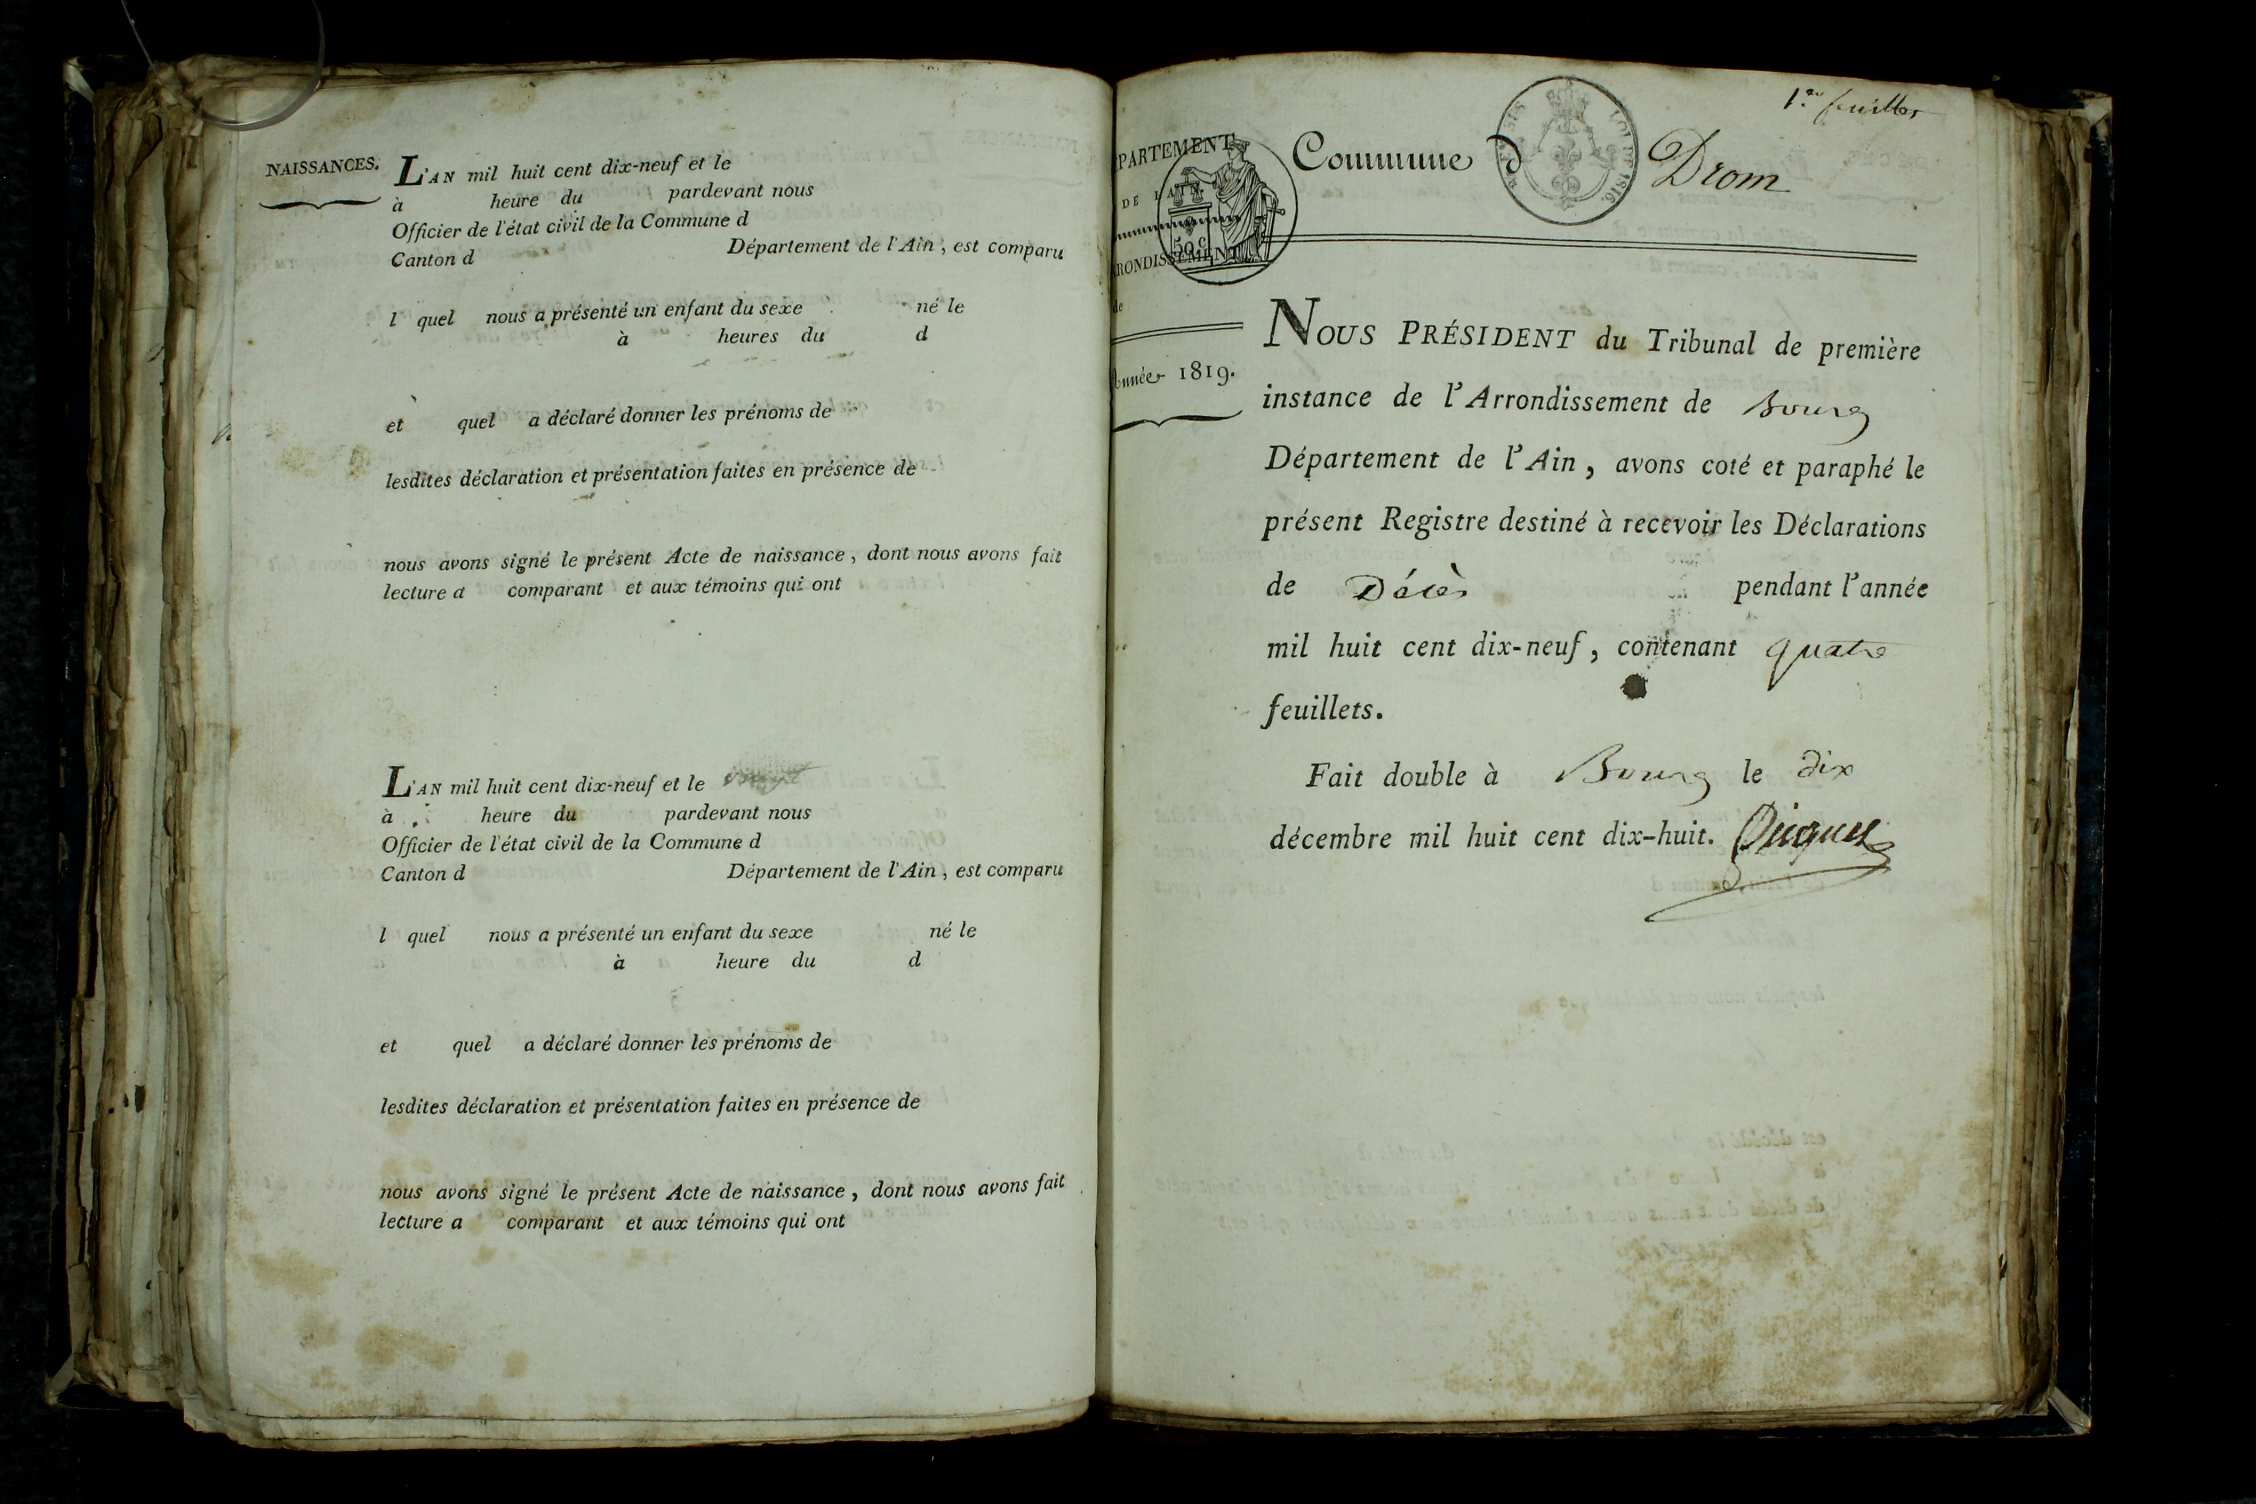 NAISSANCES.
L'AN mil huit cent dix-neuf et le
à heure du pardevant nous
Officier de l'état civil de la Commune d
Canton d Département de l'Ain, est comparu
l quel nous a présenté un enfant du sexe né le
à heures du d
et quel a déclaré donner les prénoms de
lesdites déclaration et présentation faites en présence de
nous avons signé le présent Acte de naissance, dont nous avons fait
lecture a comparant et aux témoins qui ont
L'AN mil huit cent dix-neuf et le
à heure du pardevant nous
Officier de l'état civil de la Commune d
Canton d Département de l'Ain, est comparu
l quel nous a présenté un enfant du sexe né le
à heure du d
et quel a déclaré donner les prénoms de
lesdites déclaration et présentation faites en présence de
nous avons signé le présent Acte de naissance, dont nous avons fait
lecture a comparant et aux témoins qui ont
PARTEMENT
DE L'AIN
50 c
RONDISSEMENT
de
Année 1819.
Commune d Drom
1816.
NOUS PRÉSIDENT du Tribunal de première
instance de l'Arrondissement de Bourg
Département de l'Ain, avons coté et paraphé le
présent Registre destiné à recevoir les Déclarations
de Décès pendant l'année
mil huit cent dix-neuf, contenant quatre
feuillets.
Fait double à Bourg le dix
décembre mil huit cent dix-huit.